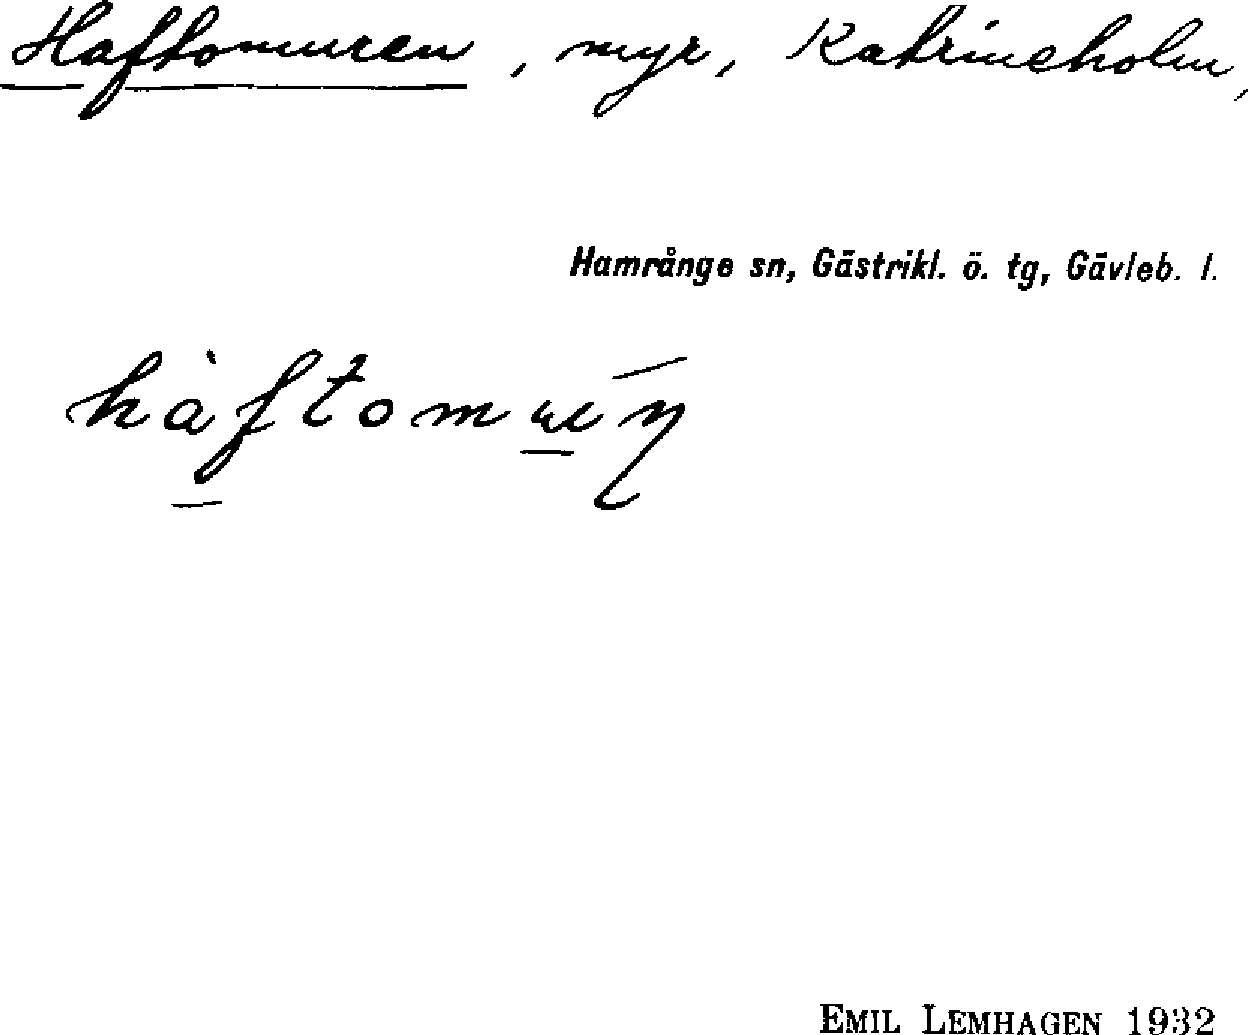 Haftomuren, myr, Katrineholm,
Hamrånge sn, Gästrikl. ö. tg, Gävleb. l.
EMIL LEMHAGEN 1932